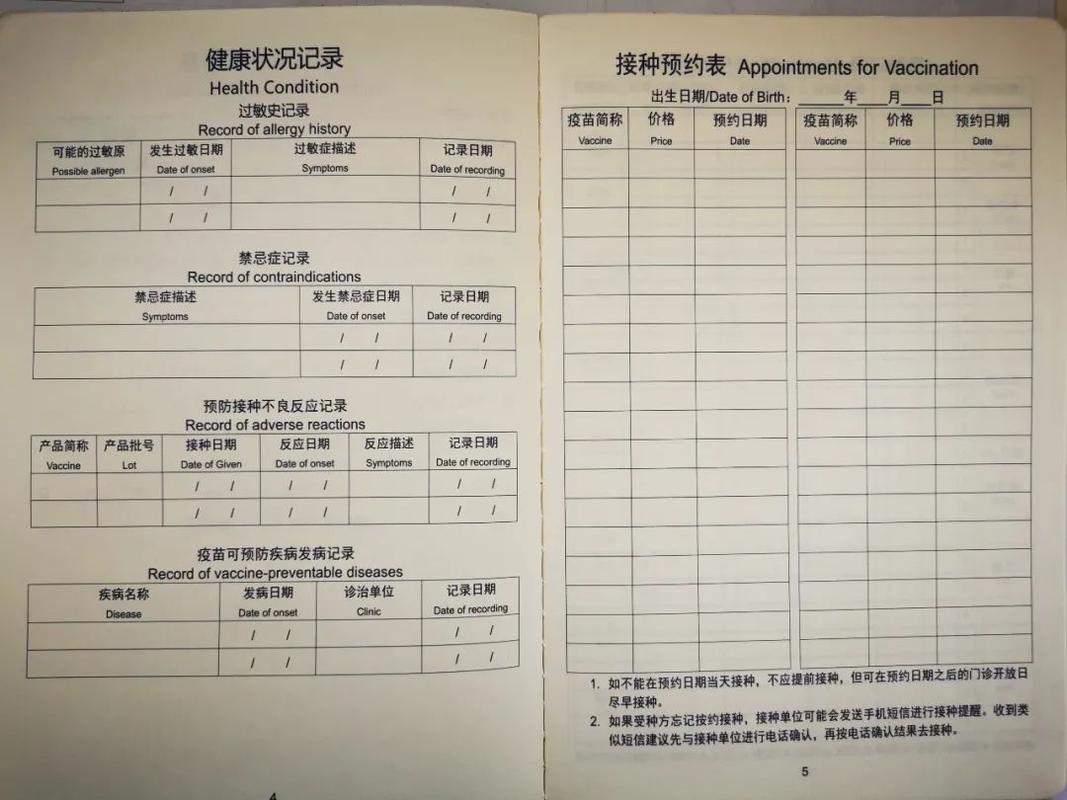 健康状况记录
Health Condition
过敏史记录
Record of allergy history
可能的过敏原 发生过敏日期 过敏症描述 记录日期
Possible allergen Date of onset Symptoms Date of recording
/ / / /
/ / / /
禁忌症记录
Record of contraindications
禁忌症描述 发生禁忌症日期 记录日期
Symptoms Date of onset Date of recording
/ / / /
/ / / /
预防接种不良反应记录
Record of adverse reactions
产品简称 产品批号 接种日期 反应日期 反应描述 记录日期
Vaccine Lot Date of Given Date of onset Symptoms Date of recording
/ / / / / /
/ / / / / /
疫苗可预防疾病发病记录
Record of vaccine-preventable diseases
疾病名称 发病日期 诊治单位 记录日期
Disease Date of onset Clinic Date of recording
/ / / /
/ / / /
4
接种预约表 Appointments for Vaccination
出生日期/Date of Birth：______年____月____日
疫苗简称 价格 预约日期 疫苗简称 价格 预约日期
Vaccine Price Date Vaccine Price Date
1. 如不能在预约日期当天接种，不应提前接种，但可在预约日期之后的门诊开放日
尽早接种。
2. 如果受种方忘记按约接种，接种单位可能会发送手机短信进行接种提醒。收到类
似短信建议先与接种单位进行电话确认，再按电话确认结果去接种。
5